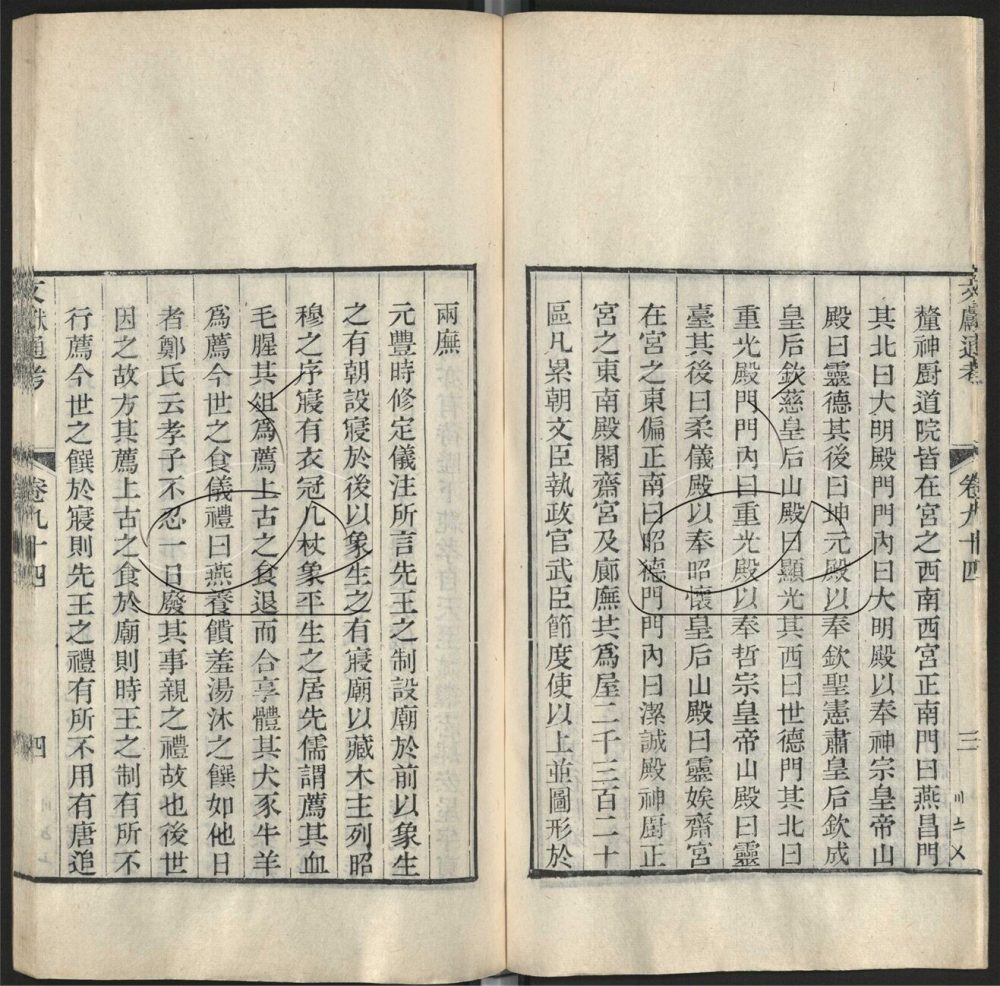 釐神厨道院皆在宮之西南西宮正南門曰燕昌門
其北曰大明殿門門內曰大明殿以奉神宗皇帝山
殿曰靈德其後曰坤元殿以奉欽聖憲肅皇后欽成
皇后欽慈皇后山殿曰顯光其西曰世德門其北曰
重光殿門門內曰重光殿以奉哲宗皇帝山殿曰靈
臺其後曰柔儀殿以奉昭懷皇后山殿曰靈娭齋宮
在宮之東偏正南曰昭德門門內曰潔誠殿神厨正
宮之東南殿閣齋宮及廊廡共爲屋二千三百二十
區凡累朝文臣執政官武臣節度使以上並圖形於
兩廡
元豐時修定儀注所言先王之制設廟於前以象生
之有朝設寢於後以象生之有寢廟以藏木主列昭
穆之序寢有衣冠几杖象平生之居先儒謂薦其血
毛腥其俎爲薦上古之食退而合享體其犬豕牛羊
爲薦今世之食儀禮曰燕養饋羞湯沐之饌如他日
者鄭氏云孝子不忍一日廢其事親之禮故也後世
因之故方其薦上古之食於廟則時王之制有所不
行薦今世之饌於寢則先王之禮有所不用有唐追
文獻通考
卷九十四
四